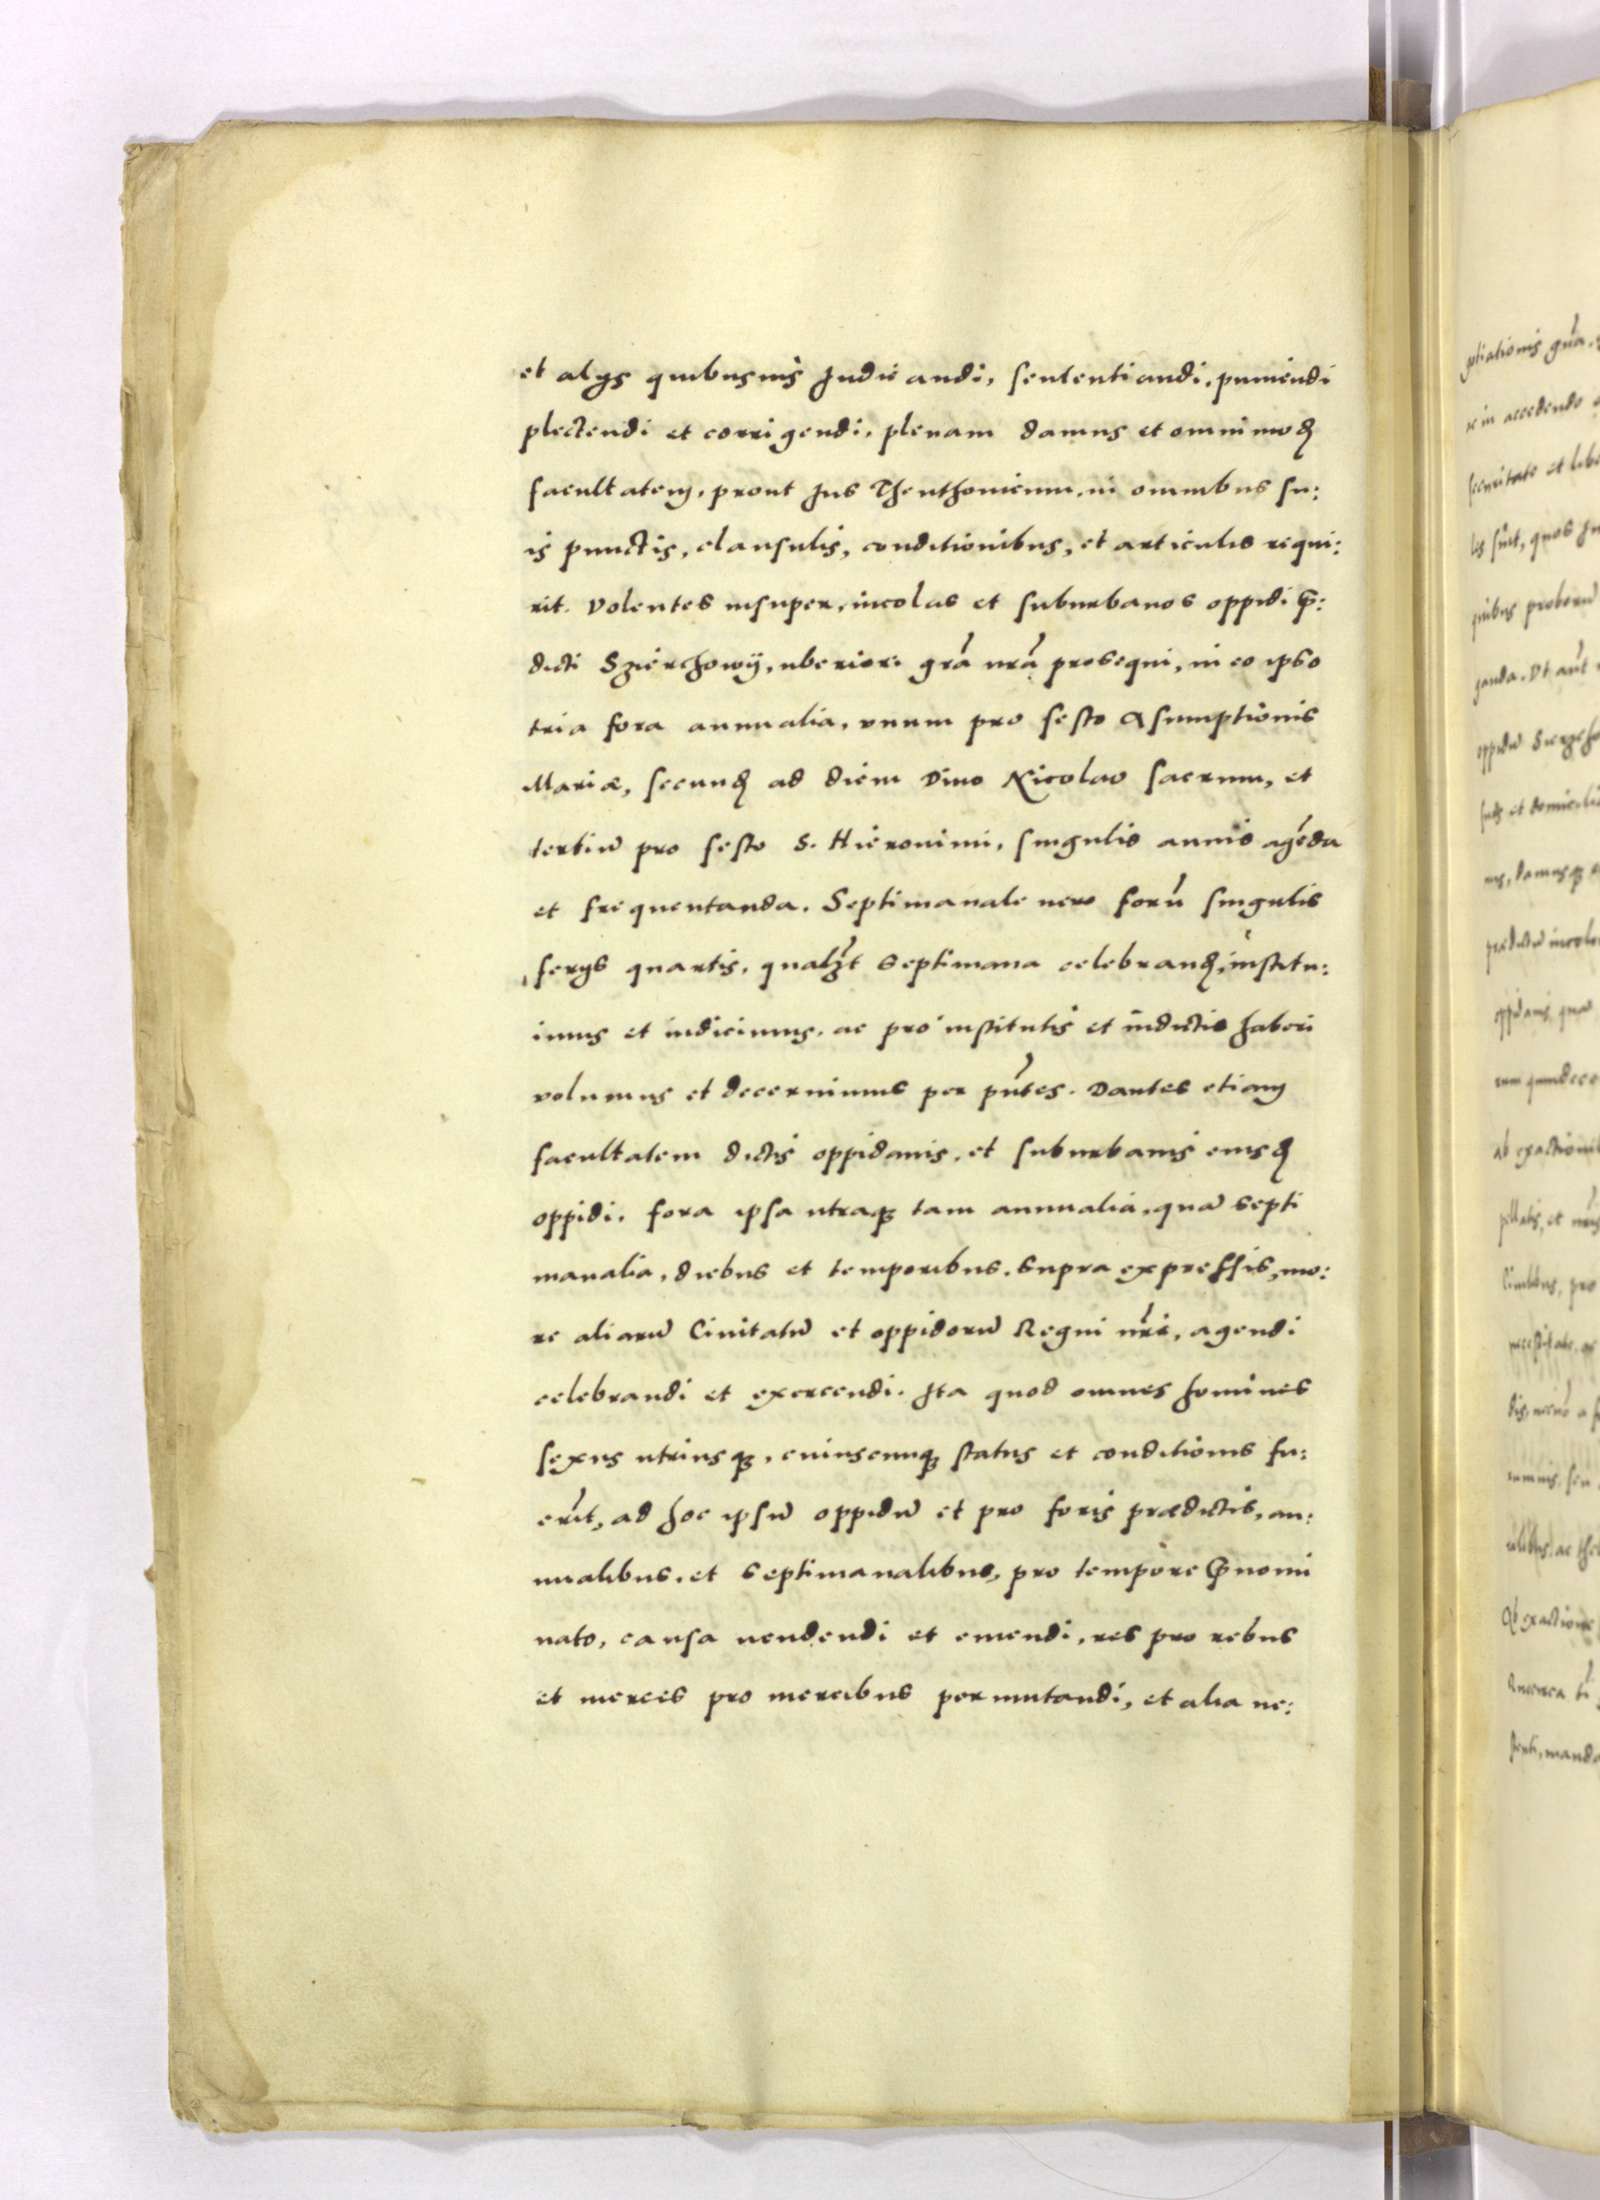 et alijs quibusuis Judicandi, sententiandi, puniendi
plectendi et corrigendi, plenam damus et omnimodꝫ
facultatem, prout Jus Theuthonicum, in omnibus su:
is punctis, clausulis, conditionibus, et articulis requi:
rit. Volentes insuper, incolas et suburbanos oppidi p̄:
dicti Szierchowÿ, uberiori grã nrã prosequi, in eo ipso
tria fora annualia, vnum pro festo Asumptionis
Mariæ, secundꝫ ad diem Diuo Nicolao sacrum, et
tertiũ pro festo S. Hieronimi, singulis annis agẽda
et frequentanda. Septimanale uero forũ singulis
ferijs quartis, qualꝫt septimana celebrandꝫ, institu:
imus et indicimus, ac pro institutis et indictis haberi
volumus et decernimus per pñtes. Dantes etiam
facultatem dictis oppidanis, et suburbanis eiusdꝫ
oppidi, fora ipsa utraqꝫ tam annualia, quã septi
manalia, diebus et temporibus, supra expressis, mo:
re aliarũ Ciuitatũ et oppidorũ Regni nr̃i, agendi
celebrandi et exercendi. Ita quod omnes homines
sexus utriusqꝫ, cuiuscunqꝫ status et conditionis fu:
erĩt, ad hoc ipsũ oppidũ et pro foris prædictis, an:
nualibus, et septimanalibus, pro tempore p̄nomi
nato, causa uendendi et emendi, res pro rebus
et merces pro mercibus permutandi, et alia ne: